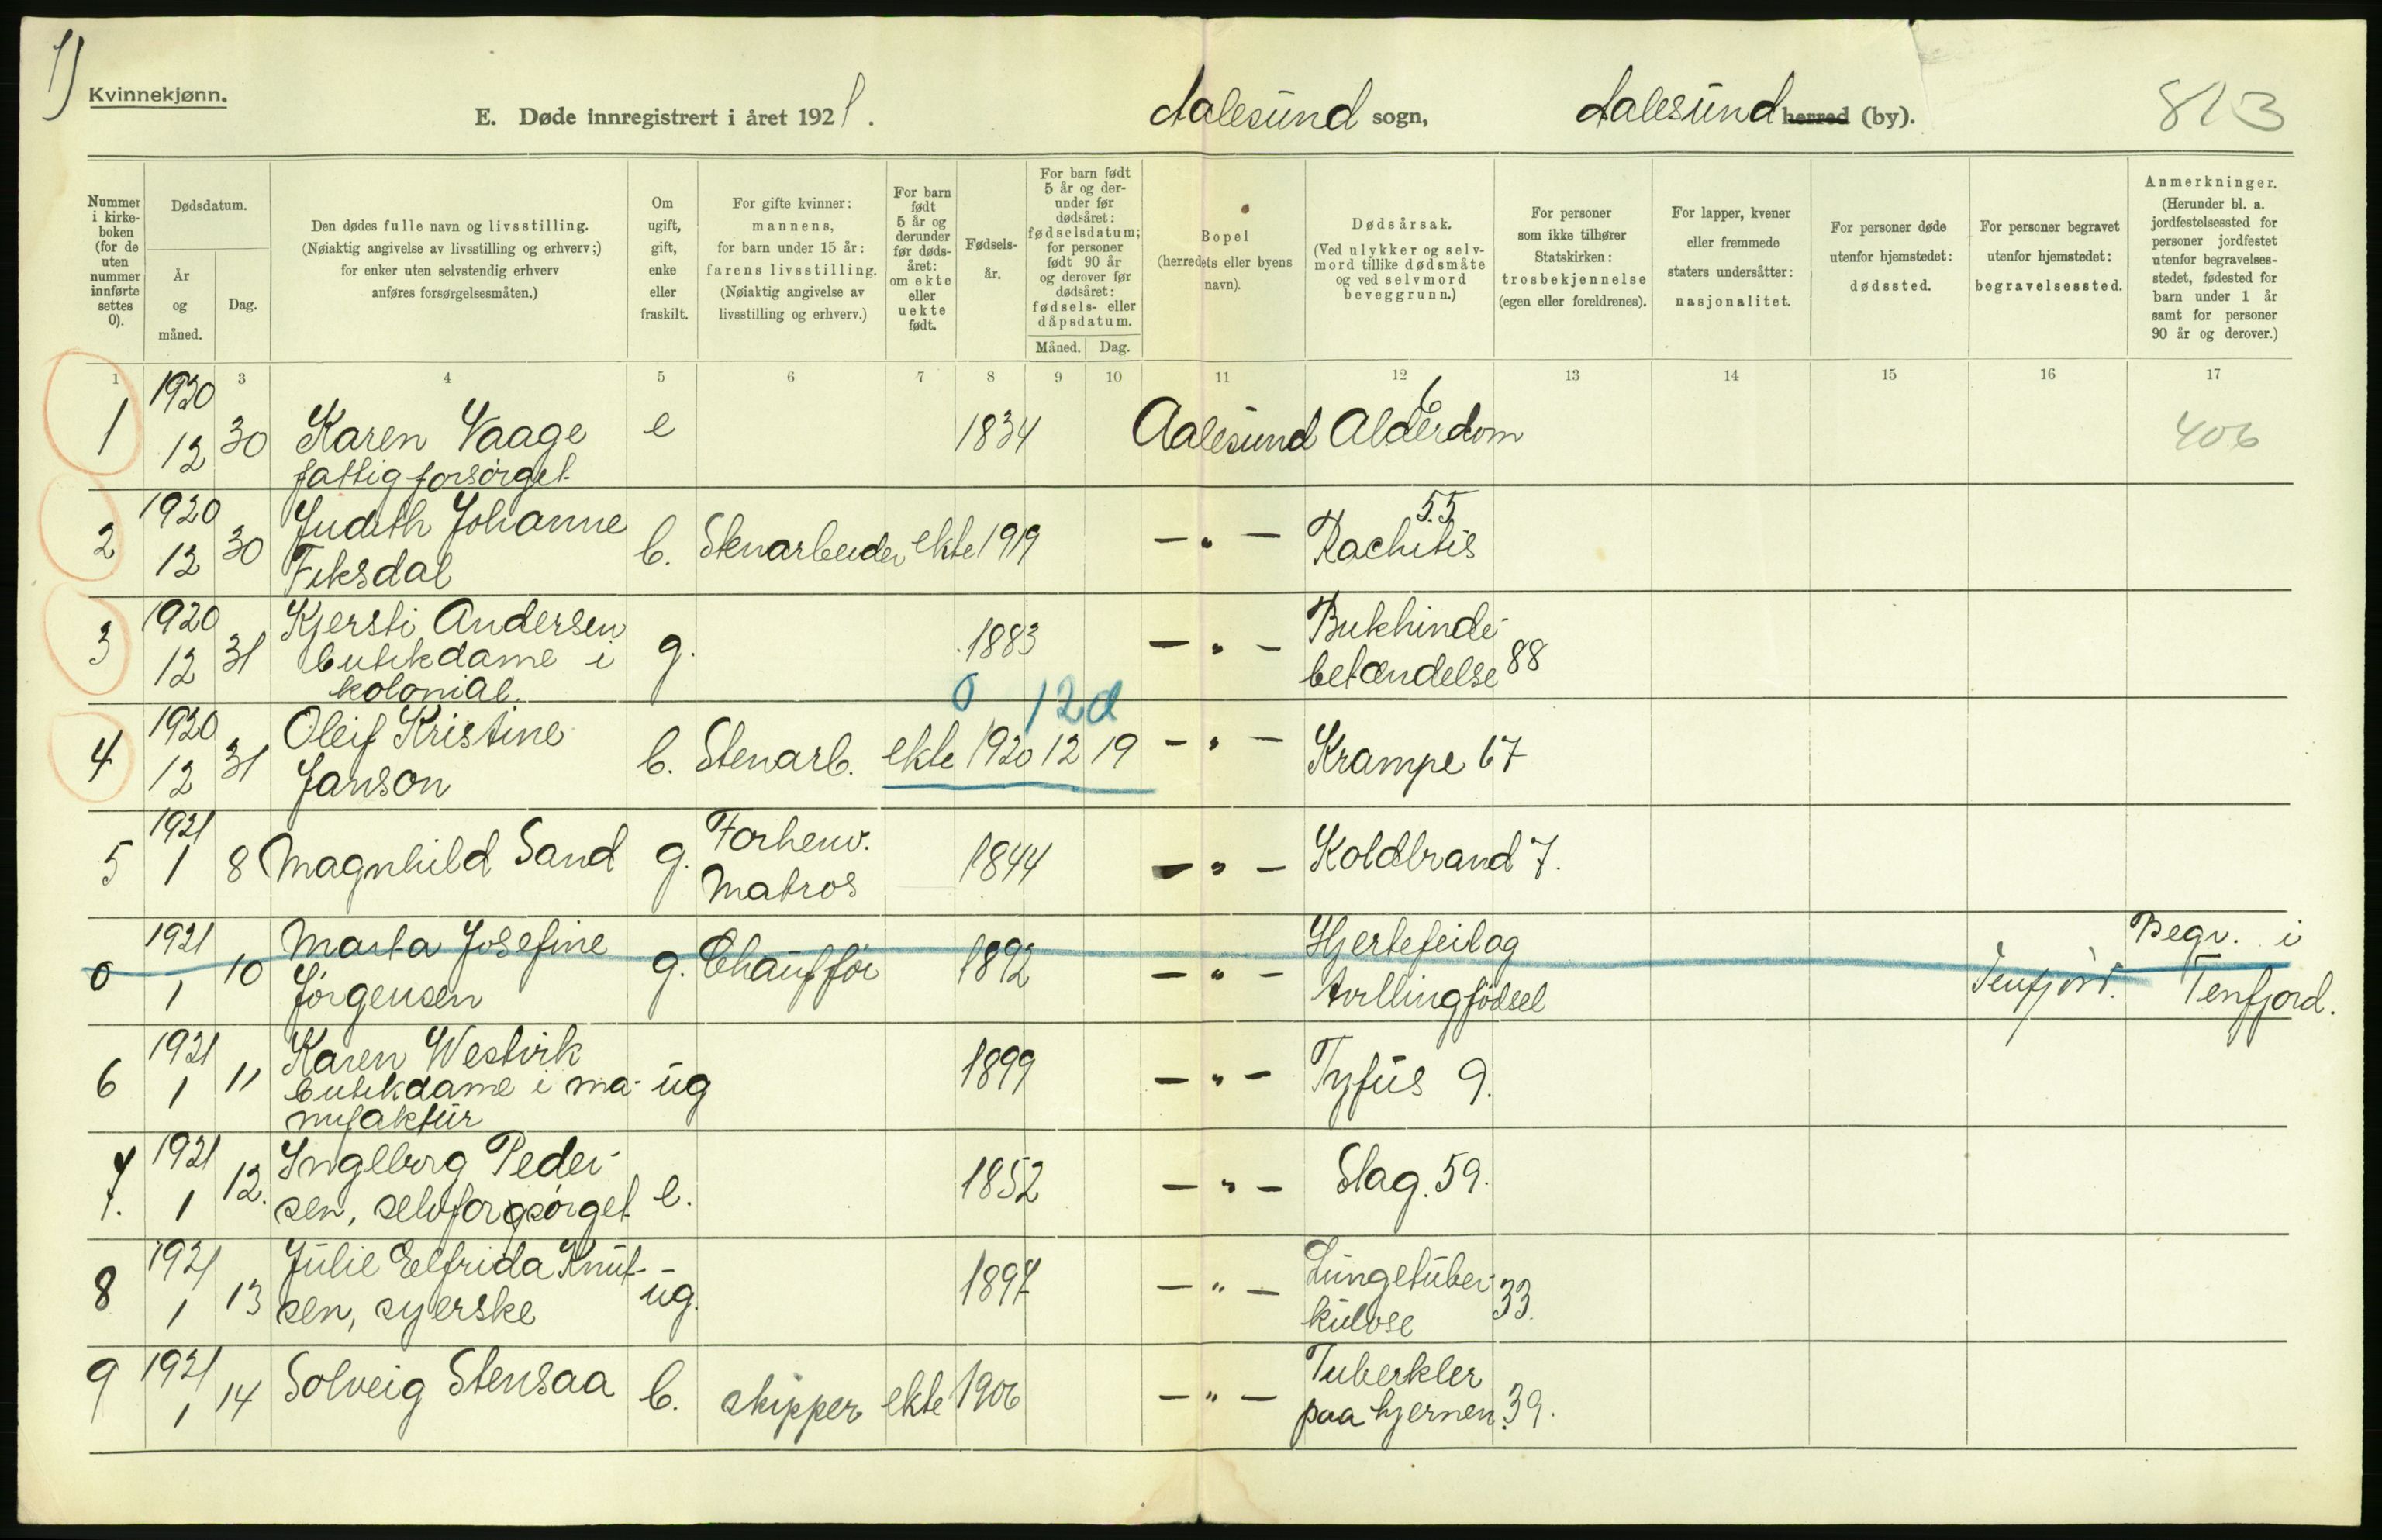 1)
Kvinnekjønn.
E. Døde innregistrert i året 1921. Aalesund sogn, Aalesund herred (by). 813
Nummer i kirke-boken (for de uten nummer innførte settes 0).
Dødsdatum.
År og måned.
Dag.
Den dødes fulle navn og livsstilling.
(Nøiaktig angivelse av livsstilling og erhverv;)
for enker uten selvstendig erhverv
anføres forsørgelsesmåten.)
Om ugift, gift, enke eller fraskilt.
For gifte kvinner:
mannens,
for barn under 15 år:
farens livsstilling.
(Nøiaktig angivelse av
livsstilling og erhverv.)
For barn født 5 år og derunder før døds-året: om ekte eller uekte født.
Fødsels-år.
For barn født 5 år og der-under før dødsåret: fødselsdatum; for personer født 90 år og derover før dødsåret: fødsels- eller dåpsdatum.
Måned. Dag.
Bopel
(herredets eller byens
navn).
Dødsårsak.
(Ved ulykker og selv-
mord tillike dødsmåte
og ved selvmord
beveggrunn.)
For personer
som ikke tilhører
Statskirken:
trosbekjennelse
(egen eller foreldrenes).
For lapper, kvener
eller fremmede
staters undersåtter:
nasjonalitet.
For personer døde
utenfor hjemstedet:
dødssted.
For personer begravet
utenfor hjemstedet:
begravelsessted.
Anmerkninger.
(Herunder bl. a.
jordfestelsessted for
personer jordfestet
utenfor begravelses-
stedet, fødested for
barn under 1 år
samt for personer
90 år og derover.)
1 3 4 5 6 7 8 9 10 11 12 13 14 15 16 17
1 1920 12 30 Karen Vaage e 1834 Aalesund Alderdom 6 406
fattigforsørget
2 1920 12 30 Judith Johanne b. Stenarbeider ekte 1919 — " — Rachitis 55
Fiksdal
3 1920 12 31 Kjersti Andersen g. 1883 — " — Bukhinde-
butikdame i betændelse 88
kolonial.
0 12 d
4 1920 12 31 Oleif Kristine b. Stenarb. ekte 1920 12 19 — " — Krampe 67
Janson
5 1921 1 8 Magnhild Sand g. Forhenv. 1844 — " — Koldbrand 7.
Matros
0 1921 1 10 Marta Josefine g. Chauffør 1892 — " — Hjertefeil og Tenfjord. Begr. i
Jørgensen tvillingfødsel Tenfjord.
6 1921 1 11 Karen Westvik ug 1899 — " — Tyfus 9.
butikdame i ma-
nufaktur
7. 1921 1 12. Ingeborg Peder- e. 1852 — " — Slag. 59.
sen, selvforsørget
8 1921 1 13 Julie Elfrida Knut- ug. 1897 — " — Lungetuber-
sen, syerske kulose 33.
9 1921 1 14 Solveig Stensaa b. skipper ekte 1906 — " — Tuberkler
paa hjernen. 39.